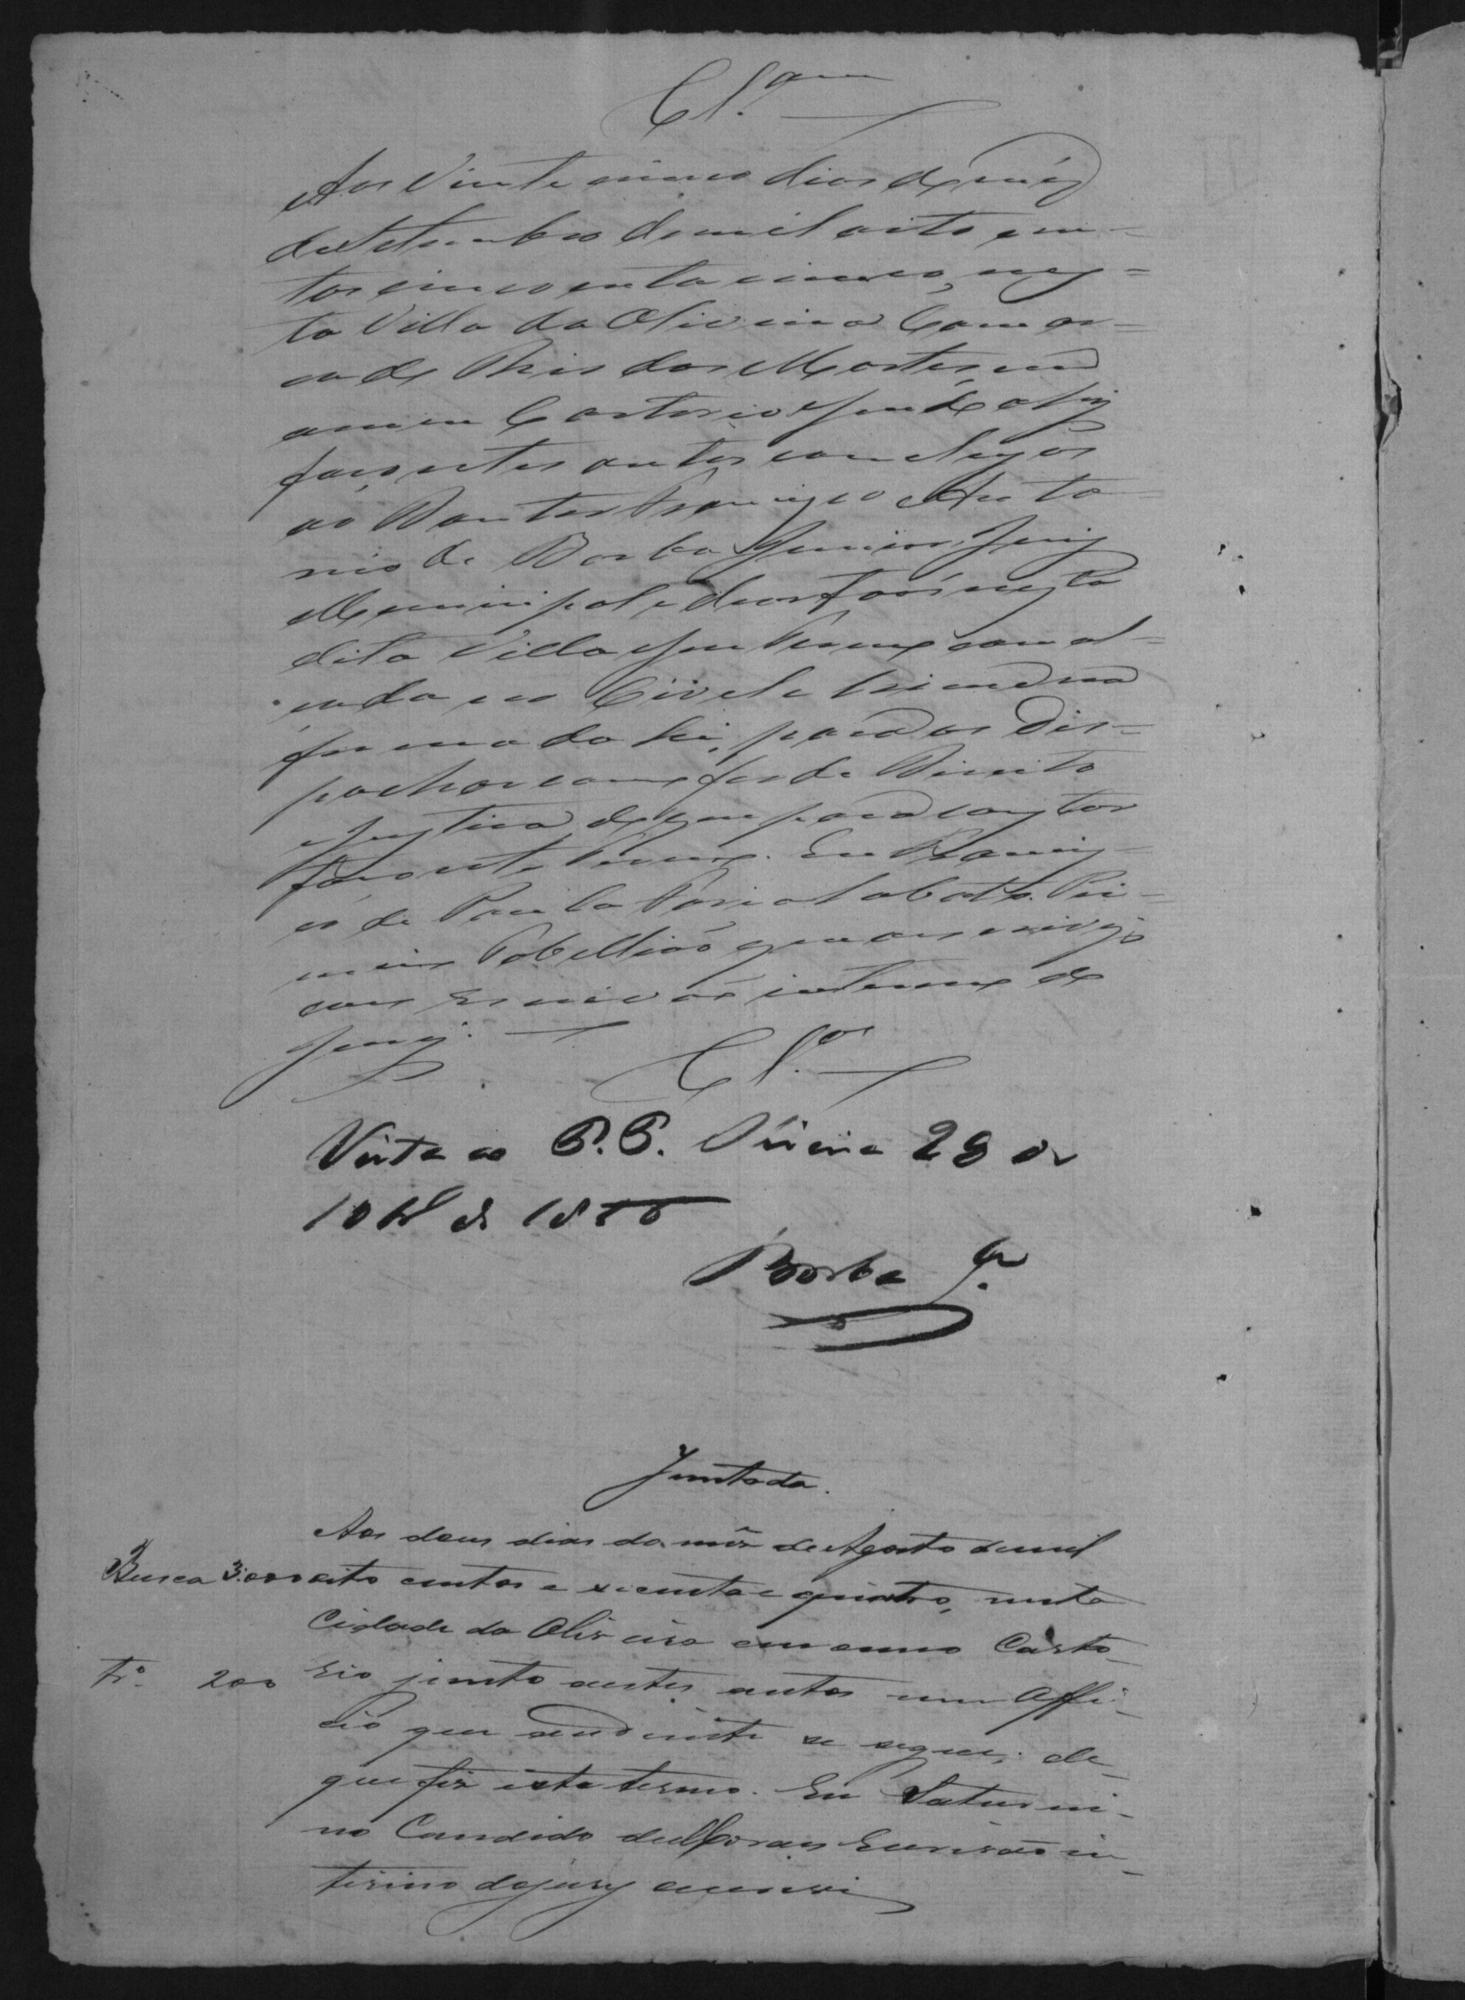 Cl.am
Aos vinte cinco dias do mêz
de Setembro de mil oito cen-
tos cincoenta cinco, nes-
ta Villa da Oliveira Comar-
ca do Rio das Mortes, em
o meu Cartorio, sendo ahi
faço estes autos conclusos
ao Doutor Francisco Anto-
nio de Borba Junior, Juiz
Municipal e de orfaõs nesta
dita Villa seu Termo com al-
cada no Civel e Crime na
forma da Lei, para os dis-
pachar como for de Direito
e Justiça de que para constar
faço este Termo. Eu Francis-
co de Paula Faria Lobato. Pri-
meiro Tabelliaõ que o escrevi
com Escrivaõ interino do
Jury.
Cl.os
Vista ao P.P. Oliveira 28 de
10bro de 1855
Borba Jor
Juntada.
Aos dous dias do mês de Agosto de mil
Busca 3:000 oito centos e secenta e quatro, nesta
Cidade da Oliveira em o meu Carto-
Tr.o 200 rio junto a estes autos um Offi-
cio que ao diante se segue; de
que fiz este termo. Eu Saturni-
no Candido de Moraes Escrivaõ in-
terino do jury o escrevi